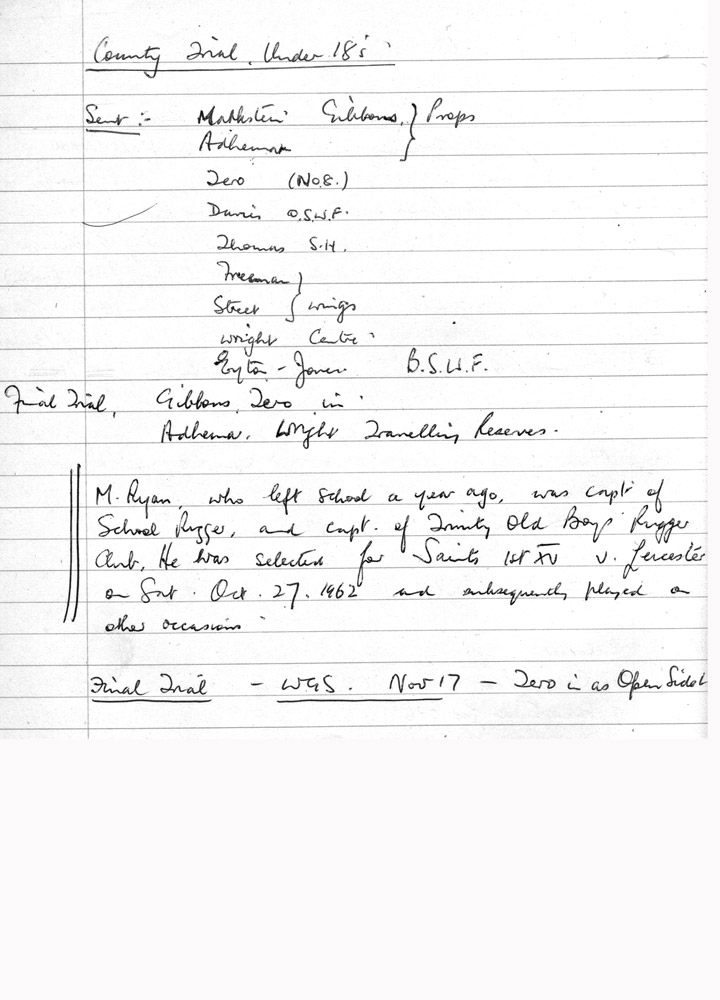 County Trial. Under 18's
Sent :- Gibbons, } Props
Adhemar
Zero (No8.)
Davis O.S.W.F.
Thomas S.H.
Freeman }
Street { wings
Wright Centre
Eyton-Jones B.S.W.F.
Final Trial, Gibbons, Zero in
Adhemar, Wright Travelling Reserves.
M. Ryan, who left school a year ago, was capt of
School Rugger, and capt. of Trinity Old Boys Rugger
Club, He was selected for Saints 1st XV v. Leicester
on Sat. Oct. 27. 1962 and subsequently played on
other occasions
Final Trial - WGS. Nov 17 - Zero in as Open Side